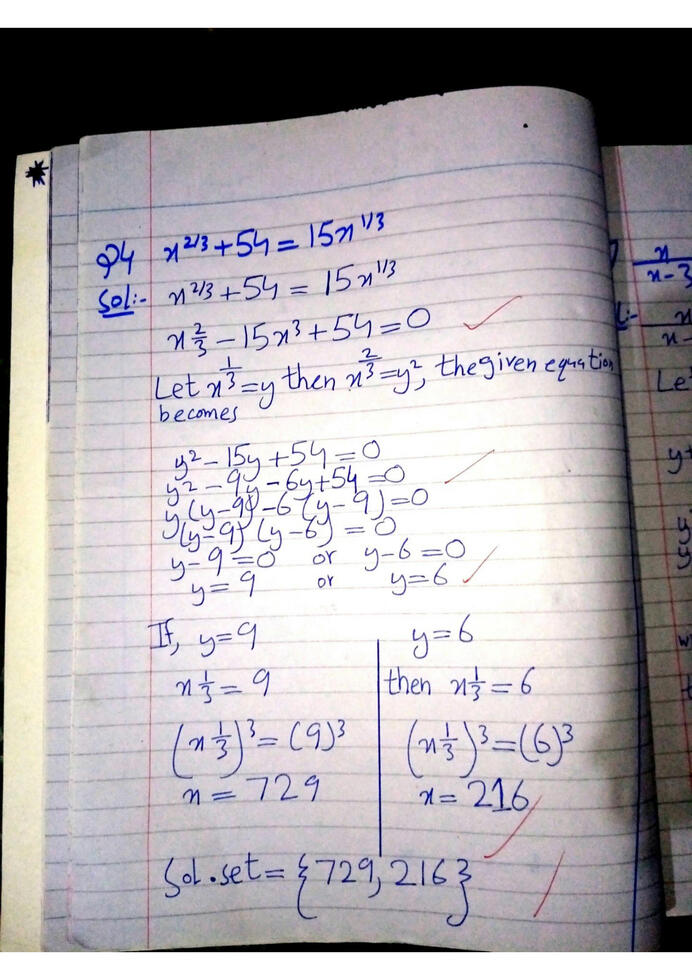 Q4 x^2/3 + 54 = 15x^1/3
Sol:- x^2/3 + 54 = 15x^1/3
x 2/3 - 15x^3 + 54 = 0
Let x^1/3 = y then x^2/3 = y², the given equation
becomes
y² - 15y + 54 = 0
y² - 9y - 6y + 54 = 0
y (y-9) - 6 (y-9) = 0
(y-9) (y-6) = 0
y-9 = 0 or y-6 = 0
y = 9 or y = 6
If, y = 9
x 1/3 = 9
(x 1/3)³ = (9)³
x = 729
y = 6
then x 1/3 = 6
(x 1/3)³ = (6)³
x = 216
Sol.set = {729, 216}
x
x-3
Le
y+